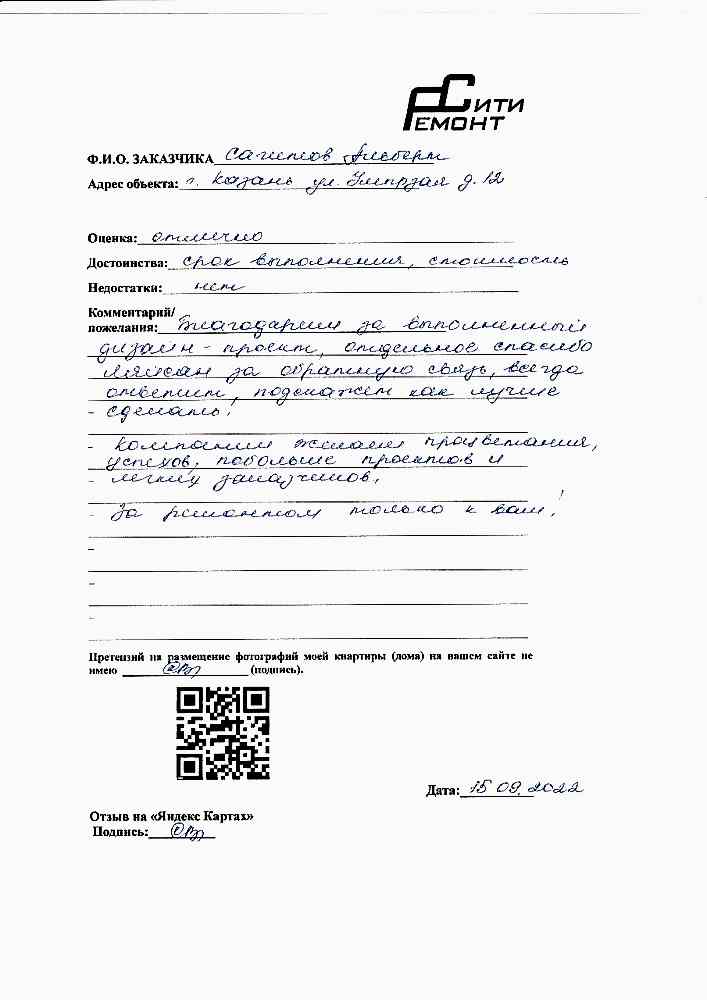 СИТИ
РЕМОНТ
Ф.И.О. ЗАКАЗЧИКА Сагитов Альберт
Адрес объекта: г. Казань ул. д. 12
Оценка: отлично
Достоинства: срок выполнения, стоимость
Недостатки: нет
Комментарий/
пожелания: Благодарим за выполненный
дизайн - проект, отдельное спасибо
за обратную связь, всегда
ответит, подскажет как лучше
- сделать.
- компании желаем процветания,
успехов, побольше проектов и
- легких заказчиков.
- За ремонтом только к вам!
-
-
-
Претензий на размещение фотографий моей квартиры (дома) на вашем сайте не
имею (подпись).
Дата: 15 09. 2022
Отзыв на «Яндекс Картах»
Подпись: